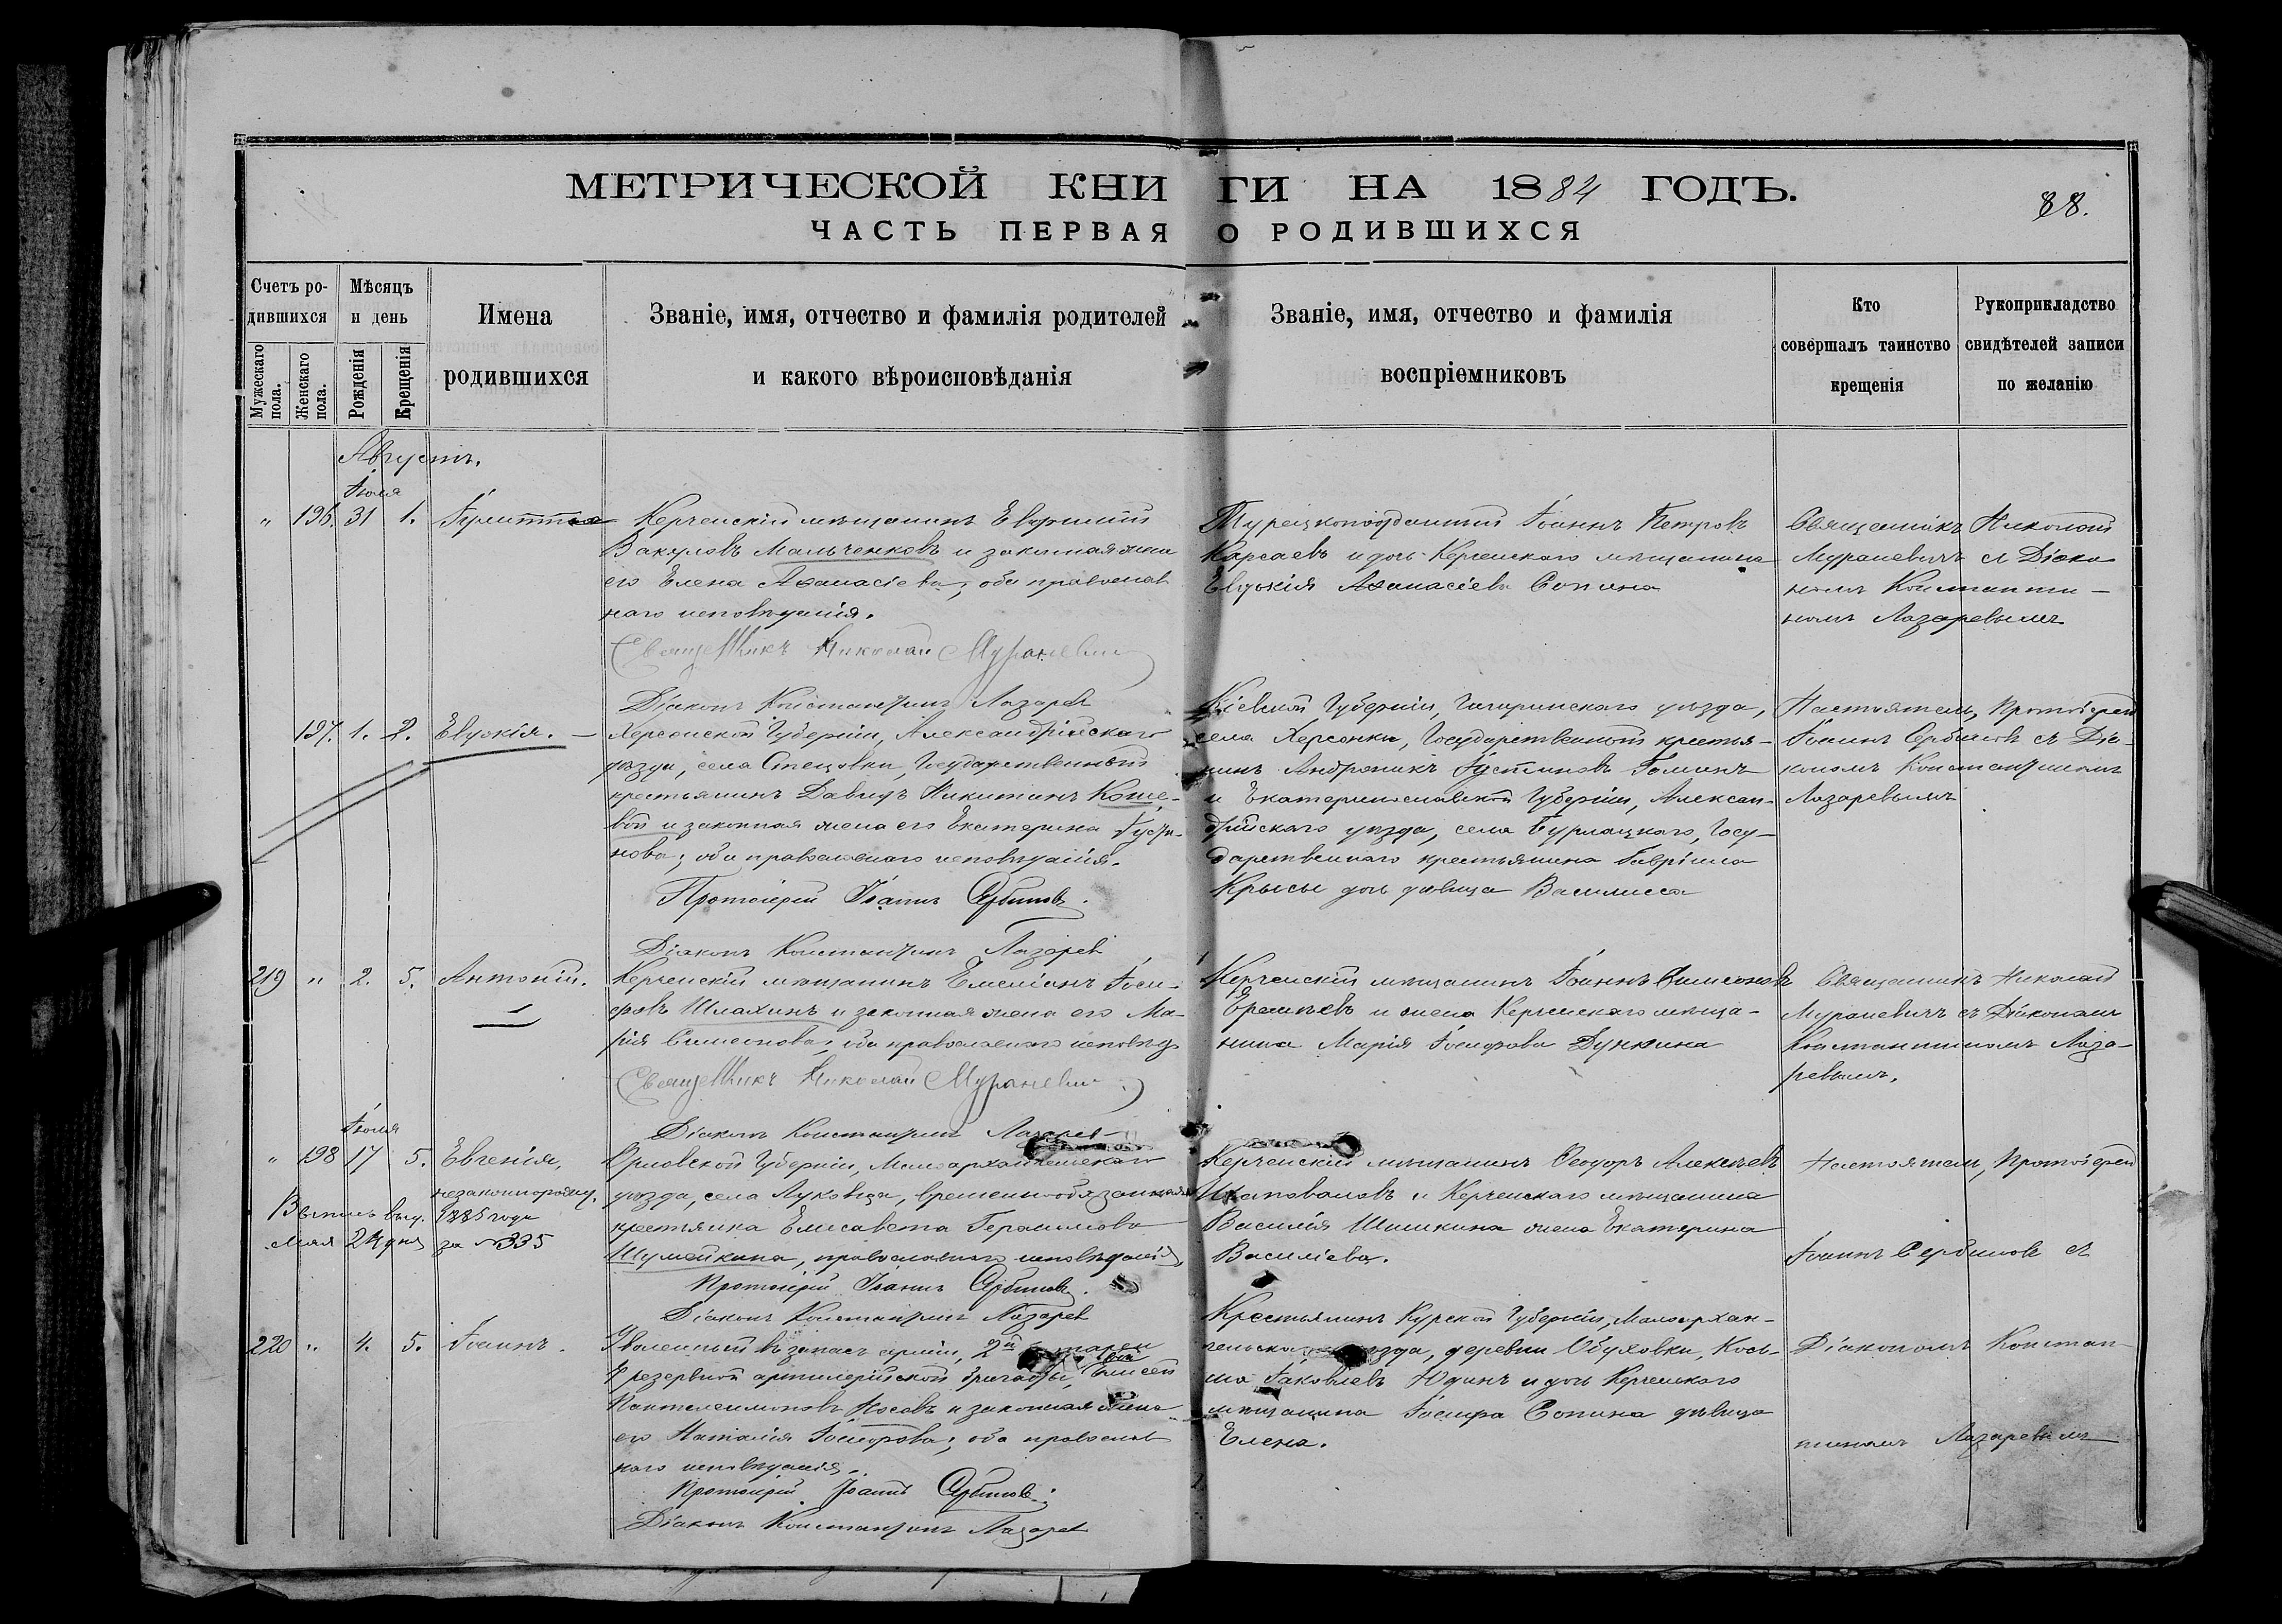 МЕТРИЧЕСКОЙ КНИГИ НА 1884 ГОДЪ.
88.
ЧАСТЬ ПЕРВАЯ О РОДИВШИХСЯ
Счетъ родившихся
Мужескаго пола.
Женскаго пола.
Мѣсяцъ и день
Рожденія
Крещенія
Имена
родившихся
Званіе, имя, отчество и фамилія родителей
и какого вѣроисповѣданія
Званіе, имя, отчество и фамилія
воспріемниковъ
Кто
совершалъ таинство
крещенія
Рукоприкладство
свидѣтелей записи
по желанію
Августъ.
Іюля
" 196. 31 1.
Керченскій мѣщанинъ Евфимій
Вакуловъ Мальченковъ и законная жена
его Елена Аѳанасіева, оба православ
наго исповѣданія.
Священникъ Николай Мураневич
Діаконъ Константинъ Лазарев
Турецкоподданный Іоаннъ Петровъ
Карсаевъ и дочь Керченскаго мѣщанина
Евдокія Аѳанасіева Сопина
Священникъ Николай
Мураневичъ съ Діако
номъ Константи-
номъ Лазаревымъ
197. 1. 2. Евдокія.
Херсонской Губерніи, Александрійскаго
уѣзда, села Стецовки, Государственный
крестьянинъ Давидъ Никитинъ Коше-
вой и законная жена его Екатерина Густи-
нова; оба православнаго исповѣданія.
Протоіерей Іоаннъ Сербиновъ.
Діаконъ Константинъ Лазарев
Кіевской Губерніи, Чигиринскаго уѣзда,
села Херсонки, Государственный крестья-
нинъ Андроникъ Густиновъ
и Екатеринославской Губерніи, Алексан-
дрійскаго уѣзда, села Бурлацкаго, Госу-
дарственнаго крестьянина Гавріила
Крысы дочь дѣвица Василисса
Настоятель, Протоіерей
Іоаннъ Сербиновъ съ Діа-
кономъ Константиномъ
Лазаревымъ
219 " 2. 5. Антоній.
Керченскій мѣщанинъ Емеліанъ Іоси-
фовъ Шлахинъ и законная жена его Ма-
рія Симеонова; оба православнаго исповѣд
Священникъ Николай Мураневич
Діаконъ Константинъ Лазарев
Керченскій мѣщанинъ Іоаннъ Симеоновъ
Еремѣевъ и жена Керченскаго мѣща-
нина Марія Іосифова Дункина
Священникъ Николай
Мураневичъ съ Діакономъ
Константиномъ Лаза-
ревымъ.
Іюля
" 198 17 5. Евгенія,
незаконнорожд.
Выпись выд. 1885 года
мая 24 дня за № 335
Орловской Губерніи, Малоархангельскаго
уѣзда, села Луковца, временнообязанная
крестьянка Елисавета Герасимова
Шумейкина, православнаго исповѣданія
Протоіерей Іоаннъ Сербиновъ.
Діаконъ Константинъ Лазарев
Керченскій мѣщанинъ Ѳеодоръ Алексѣевъ
Шаповаловъ и Керченскаго мѣщанина
Василія Шишкина жена Екатерина
Василіева.
Настоятель, Протоіерей
Іоаннъ Сербиновъ съ
220 " 4. 5. Іоаннъ.
Уволенный въ запасъ арміи, 2й
резервной артиллерійской бригады, Елисей
Пантелеимоновъ Носовъ и законная жена
его Наталія Іосифова; оба православ
наго исповѣданія.
Протоіерей Іоаннъ Сербиновъ.
Діаконъ Константинъ Лазарев
Крестьянинъ Курской Губерніи, Малоархан-
гельска уѣзда, деревни Обуховки, Косъ-
ма Іаковлевъ Юдинъ и дочь Керченскаго
мѣщанина Іосифа Сопина дѣвица
Елена.
Діакономъ Констан-
тиномъ Лазаревымъ